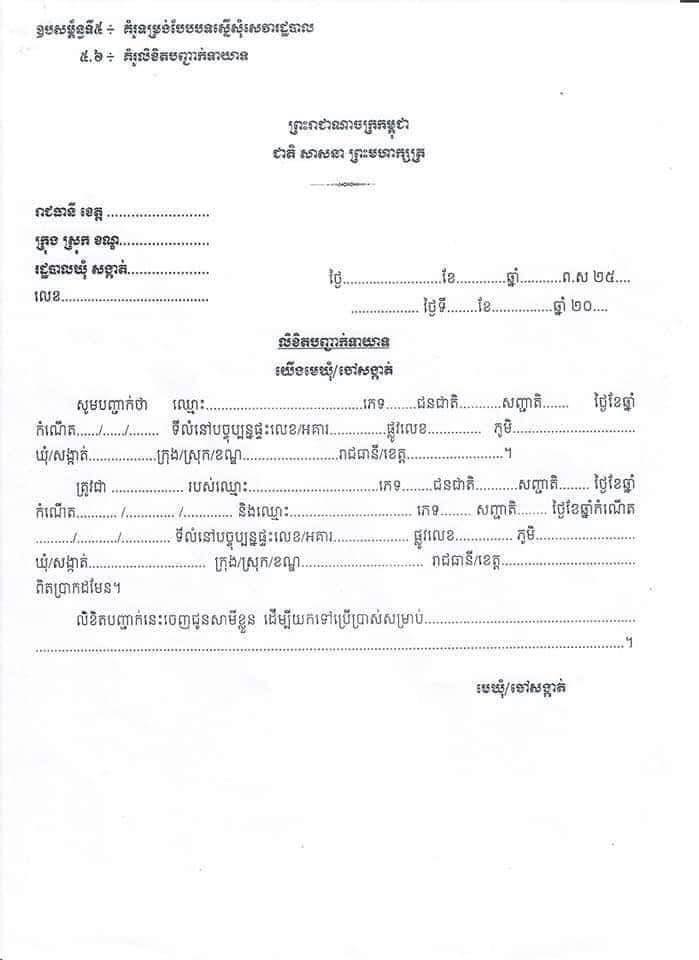 ឧបសម្ព័ន្ធទី៥ ÷ គំរូទម្រង់បែបបទស្នើសុំសេវារដ្ឋបាល
៥.៦ ÷ គំរូលិខិតបញ្ជាក់ទាយាទ
ព្រះរាជាណាចក្រកម្ពុជា
ជាតិ សាសនា ព្រះមហាក្សត្រ
រាជធានី ខេត្ត ..........................
ក្រុង ស្រុក ខណ្ឌ.......................
រដ្ឋបាលឃុំ សង្កាត់.....................
លេខ......................................
ថ្ងៃ.........................ខែ.............ឆ្នាំ...........ព.ស ២៥....
.................. ថ្ងៃទី........ខែ................ឆ្នាំ ២០....
លិខិតបញ្ជាក់ទាយាទ
យើងមេឃុំ/ចៅសង្កាត់
សូមបញ្ជាក់ថា ឈ្មោះ........................................ភេទ........ជនជាតិ...........សញ្ជាតិ....... ថ្ងៃខែឆ្នាំ
កំណើត....../....../........ ទីលំនៅបច្ចុប្បន្នផ្ទះលេខ/អគារ...............ផ្លូវលេខ.............. ភូមិ...............................
ឃុំ/សង្កាត់..................ក្រុង/ស្រុក/ខណ្ឌ.........................រាជធានី/ខេត្ត.........................។
ត្រូវជា ................... របស់ឈ្មោះ..................................ភេទ........ជនជាតិ...........សញ្ជាតិ........ ថ្ងៃខែឆ្នាំ
កំណើត........... /............. /............. និងឈ្មោះ................................ ភេទ........ សញ្ជាតិ........ ថ្ងៃខែឆ្នាំកំណើត
........../.........../............. ទីលំនៅបច្ចុប្បន្នផ្ទះលេខ/អគារ.................... ផ្លូវលេខ............... ភូមិ..........................
ឃុំ/សង្កាត់............................... ក្រុង/ស្រុក/ខណ្ឌ................................ រាជធានី/ខេត្ត...................................
ពិតប្រាកដមែន។
លិខិតបញ្ជាក់នេះចេញជូនសាមីខ្លួន ដើម្បីយកទៅប្រើប្រាស់សម្រាប់......................................................
.......................................................................................................................................................។
មេឃុំ/ចៅសង្កាត់